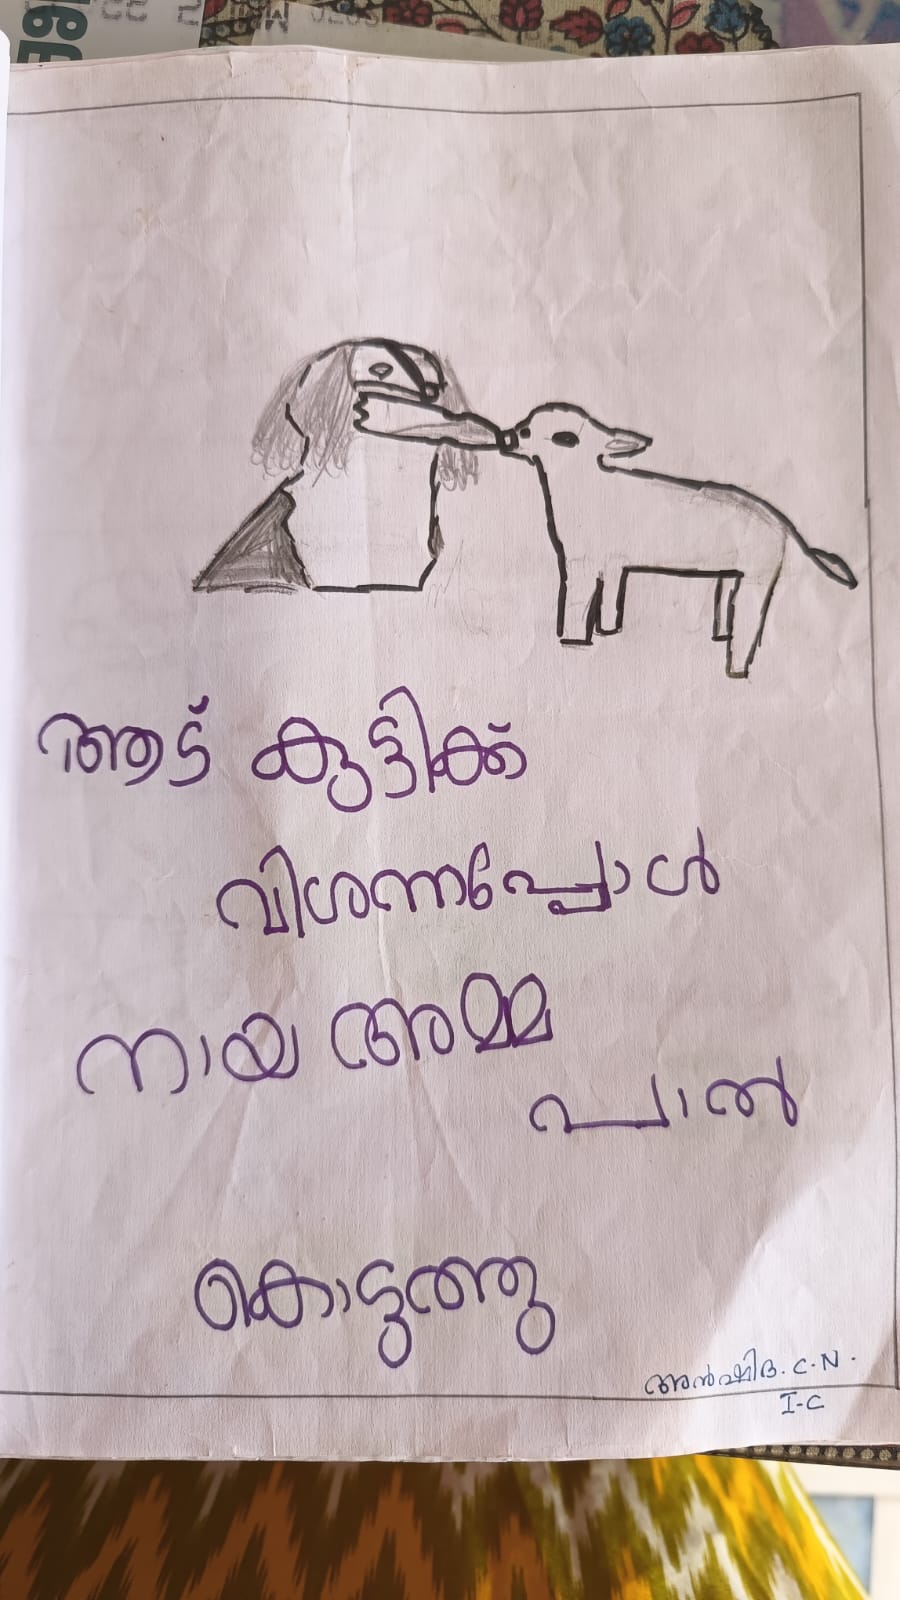 ആട് കുട്ടിക്ക്
വിശന്നപ്പോൾ
നായ അമ്മ
പാൽ
കൊടുത്തു
അൻഷിദ. C.N.
I-C